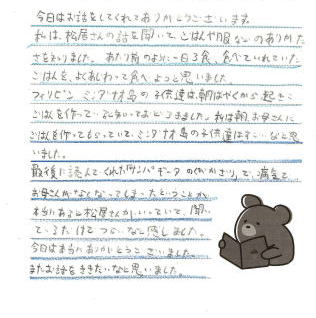 今日はお話をしてくれてありがとうございます。
私は、松居さんの話を聞いて、ごはんや服などのありがた
さを知りました。あたり前のように一日3食、食べていれていた
ごはんを、よくあじわって食べようと思いました。
フィリピン ミンダナオ島の子供達は朝はやくから起き
ごはんを作っていると知っておどろきました。私は朝、お母さんに
ごはんを作ってもらっていて、ミンダナオ島の子供達はすごいなと思
いました。
最後に読んでくれた「サンパギータのくびかざり」で、病気で
お母さんがなくなってしまったということが
本当にあると松居さんがいっていて、聞い
ているだけでつらいなと感じました。
今日は本当にありがとうございました。
またお話をききたいなと思いました。